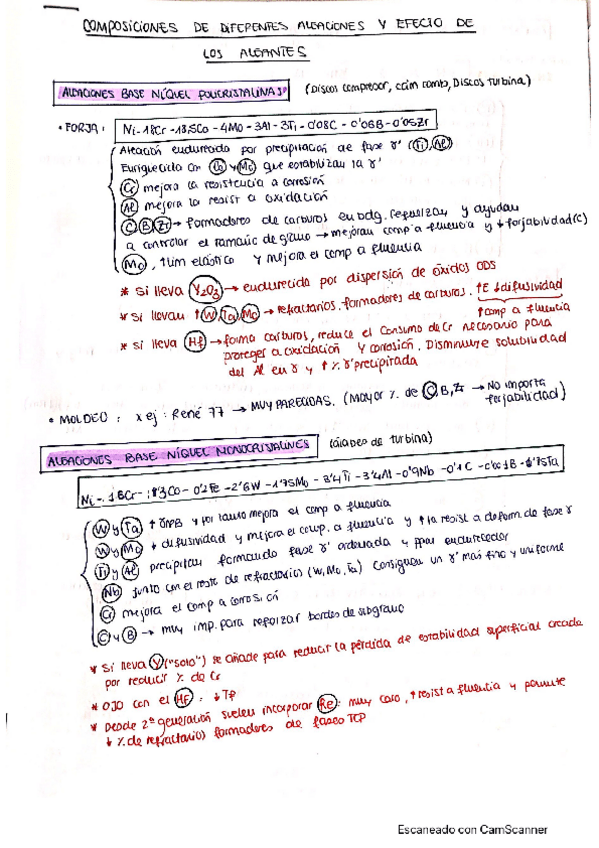 COMPOSICIONES DE DIFERENTES ALEACIONES Y EFECTO DE
LOS ALEANTES
ALEACIONES BASE NÍQUEL POLICRISTALINAS (Discos compresor, cám comb, Discos turbina)
• FORJA: Ni-18Cr-18,5Co-4Mo-3Al-3Ti-0'08C-0'06B-0'05Zr
Aleación endurecida por precipitación de fase γ' (Ti, Al)
Enriquecida con Co y Mo que estabilizan la γ'
Cr mejora la resistencia a corrosión
Al mejora la resist a oxidación
C, B, Zr → formadores de carburos en bdg. Refuerzan y ayudan
a controlar el tamaño de grano → mejoran comp a fluencia y ↓ forjabilidad (C)
Mo, ↑ lim elástico y mejora el comp a fluencia
* Si lleva Y2O3 → endurecido por dispersión de óxidos ODS
* Si llevan ↑ W, Ta, Mo → refractarios. formadores de carburos. ↑E ↓difusividad
↑ comp a fluencia
* si lleva Hf → forma carburos, reduce el consumo de Cr necesario para
proteger a oxidación y corrosión. Disminuye solubilidad
del Al en γ y ↑ % γ' precipitada
• MOLDEO: x ej: René 77 → MUY PARECIDAS. (Mayor % de C, B, Zr → No importa
forjabilidad)
ALEACIONES BASE NÍQUEL MONOCRISTALINES (álabes de turbina)
W y Ta ↑ y por tanto mejora el comp a fluencia
W y Mo ↓ difusividad y mejora el comp. a fluencia y ↑ la resist a deform de fase γ
Ti y Al precipitan formando fase γ' ordenada y ppal endurecedor
Nb junto con el resto de refractarios (W, Mo, Ta) consiguen un γ' más fino y uniforme
Cr mejora el comp a corrosión
C y B → muy imp. para reforzar bordes de subgrano
* Si lleva Y ("solo") se añade para reducir la pérdida de estabilidad superficial creada
por reducir % de Cr
* OJO con el Hf: ↓ Tf
* Desde 2ª generación suelen incorporar Re: muy caro, ↑ resist a fluencia y permite
↓ % de refractarios formadores de fases TCP
Escaneado con CamScanner